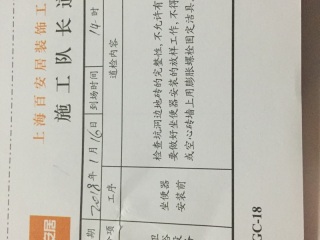 上海百安居装饰工
施工队长
期 2018年1月16日 到场时间 14时
工序 道检内容
坐便器
安装前
检查坑洞边地砖的完整性,不允许有
要做好坐便器安装的放样工作,不得
或空心砖墙上用膨胀螺栓固定洁具
GC-18
安居